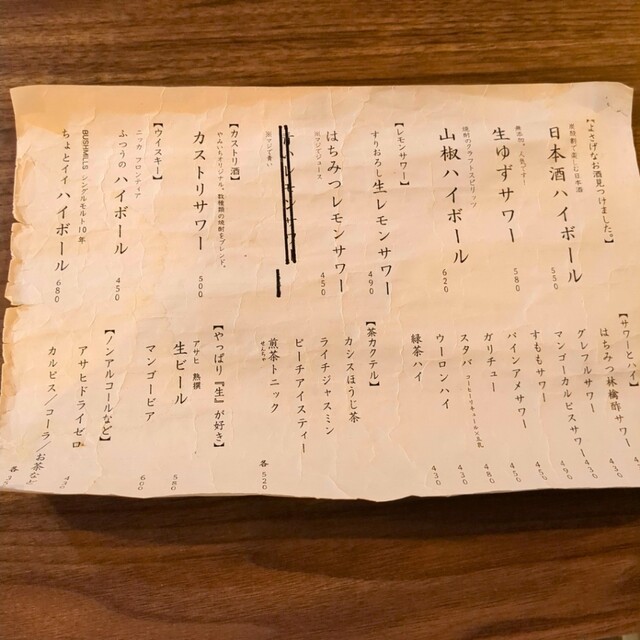 【よさげなお酒見つけました。】
日本酒ハイボール
550
無添加、人気です!
生ゆずサワー
580
焼酎のクラフトスピリッツ
山椒ハイボール
620
【レモンサワー】
すりおろし生レモンサワー
490
はちみつレモンサワー
450
※マジで青い
【カストリ酒】
やみいちオリジナル。数種類の焼酎をブレンド。
カストリサワー
500
【ウイスキー】
ニッカ フロンティア
ふつうのハイボール
450
BUSHMILLS シングルモルト10年
ちょとイイハイボール
680
【サワーとハイ】
はちみつ林檎酢サワー
グレフルサワー
430
マンゴーカルピスサワー
490
すももサワー
パインアメサワー
ガリチュー
480
スタバ
430
ウーロンハイ
430
緑茶ハイ
【茶カクテル】
カシスほうじ茶
ライチジャスミン
ピーチアイスティー
煎茶トニック
せんちゃ
各520
【やっぱり『生』が好き】
アサヒ 熟撰
生ビール
580
マンゴービア
600
【ノンアルコールなど】
アサヒドライゼロ
カルピス/コーラ/お茶など